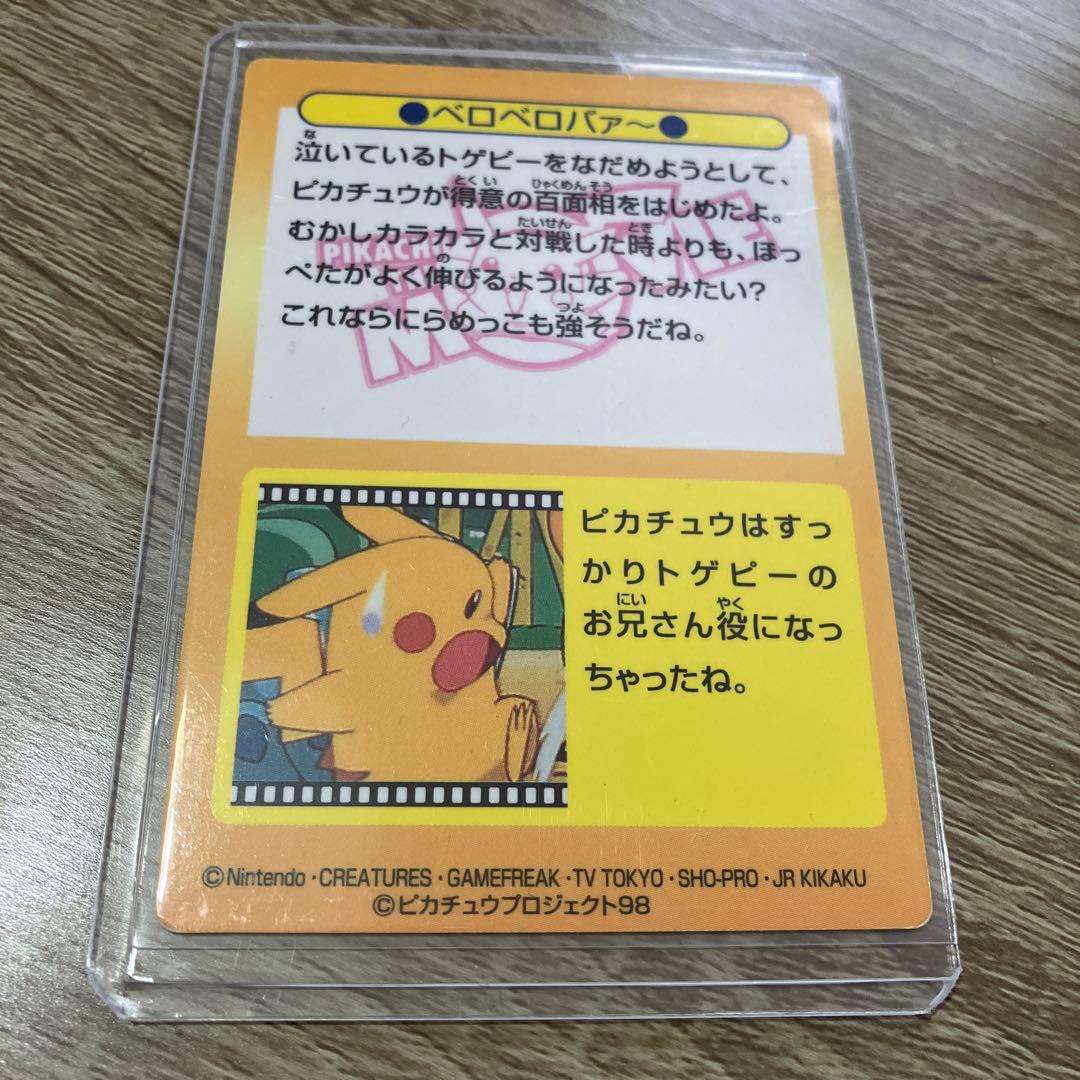 ●ベロベロバァ～●
泣いているトゲピーをなだめようとして、
ピカチュウが得意の百面相をはじめたよ。
むかしカラカラと対戦した時よりも、ほっ
ぺたがよく伸びるようになったみたい？
これならにらめっこも強そうだね。
PIKACHU
ピカチュウはすっ
かりトゲピーの
お兄さん役になっ
ちゃったね。
©Nintendo・CREATURES・GAMEFREAK・TV TOKYO・SHO-PRO・JR KIKAKU
©ピカチュウプロジェクト98